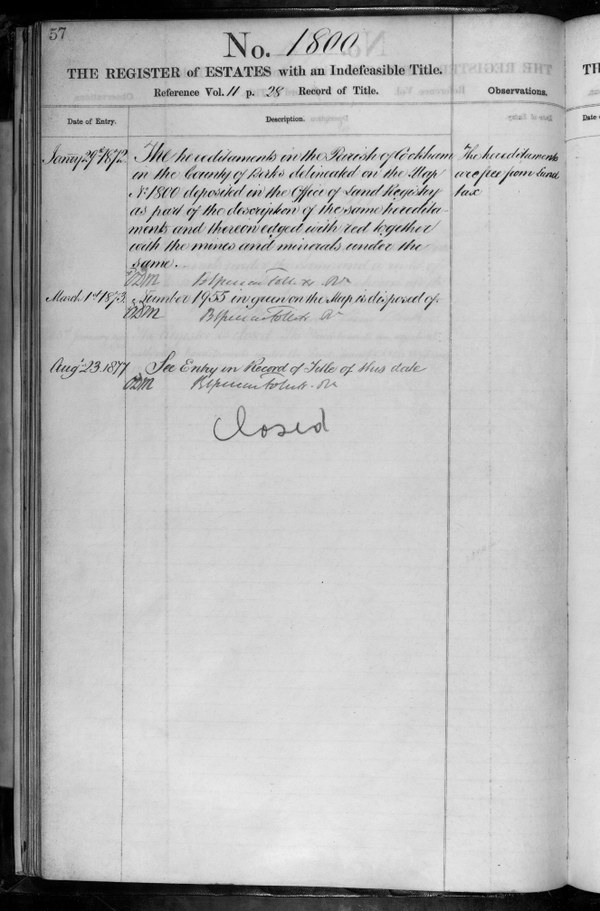 57
No. 1800
THE REGISTER of ESTATES with an Indefeasible Title.
Reference Vol. 11 p. 28 Record of Title.
Observations.
Date of Entry.
Description.
Janry 29th 1872
The hereditaments in the Parish of Cookham
in the County of Berks delineated on the Map
No 1800 deposited in the Office of Land Registry
as part of the description of the same heredita-
ments and thereon edged with red together
with the mines and minerals under the
same.
The hereditaments
are free from land
tax
March 1st 1873.
Number 1955 in green on the Map is disposed of
Augt 23. 1877
See Entry in Record of Title of this date
Closed
THE
Date